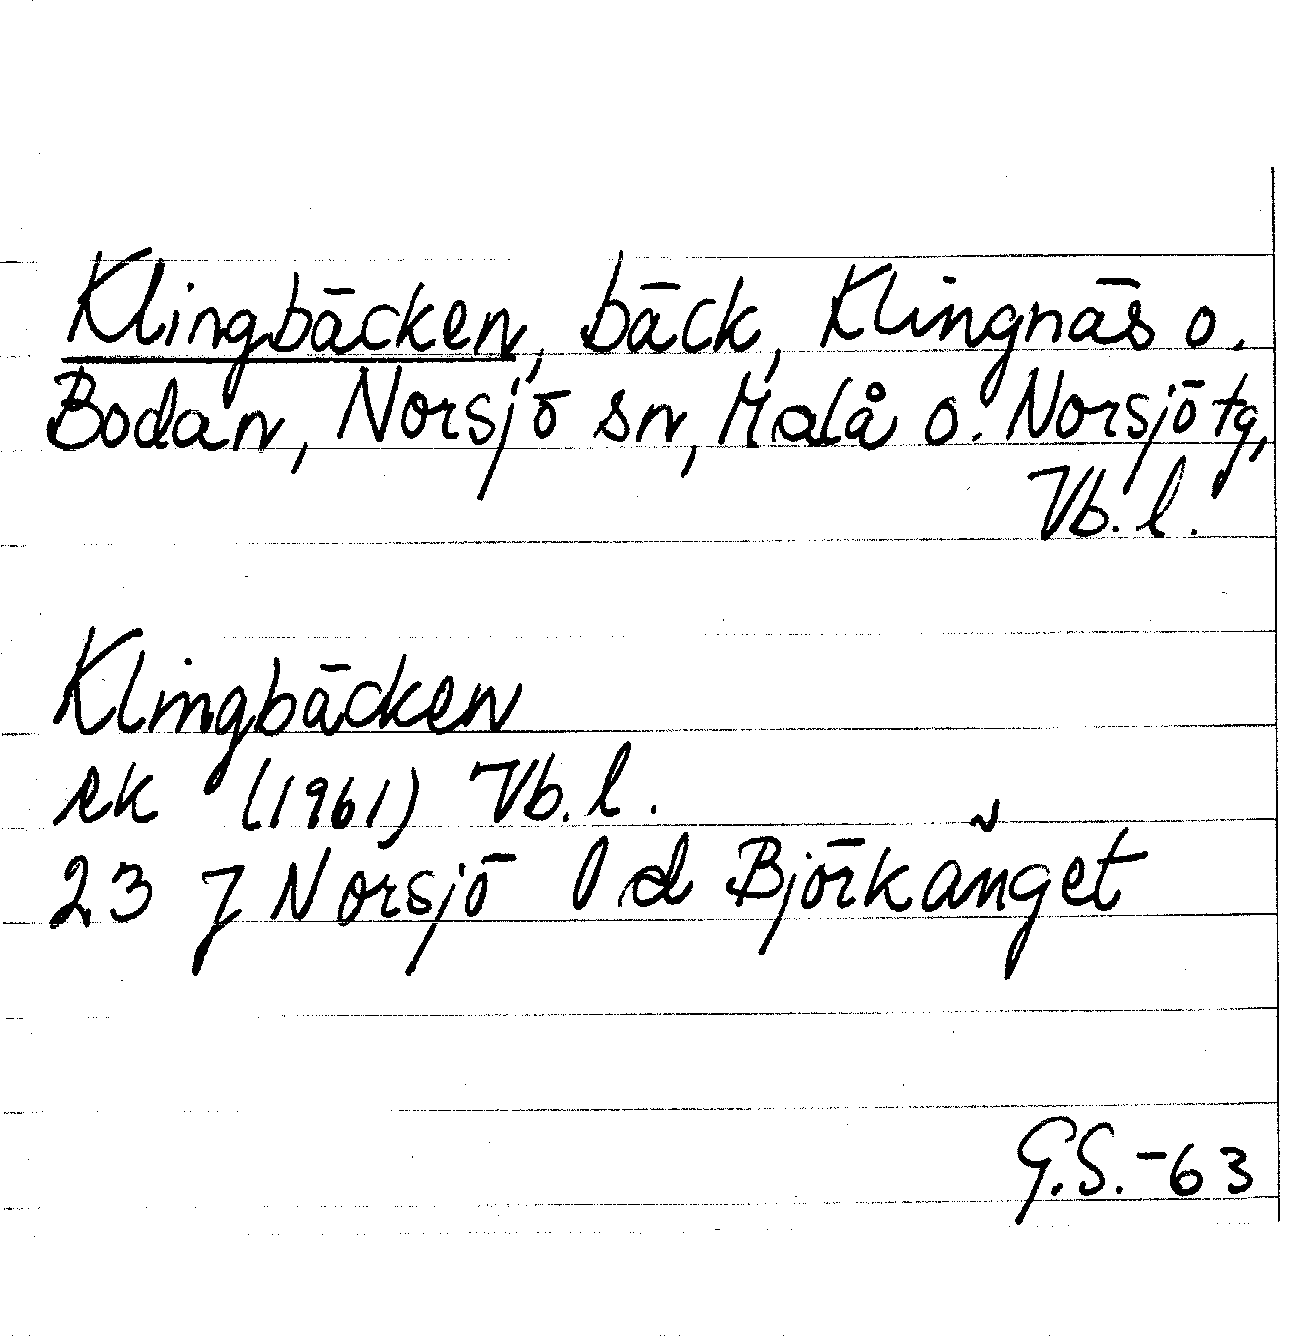 Klingbäcken, bäck, Klingnäs o.
Bodan, Norsjö sn, Malå o. Norsjö tg,
Vb. l.
Klingbäcken
ek (1961) Vb. l.
23 J Norsjö l d Björkänget
G.S.-63